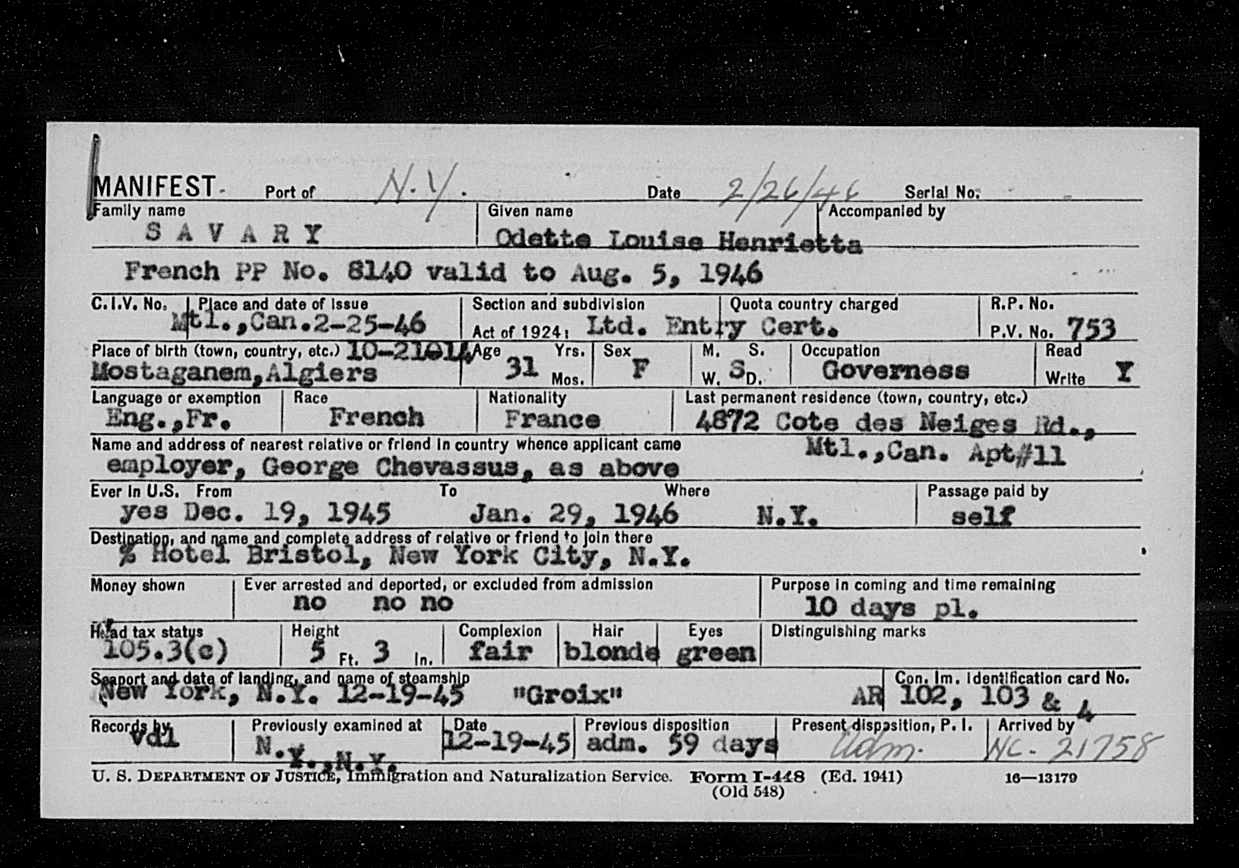 MANIFEST- Port of N.Y. Date 2/26/46 Serial No.
Family name Given name Accompanied by
S A V A R Y Odette Louise Henrietta
French PP No. 8140 valid to Aug. 5, 1946
C.I.V. No. Place and date of issue Section and subdivision Quota country charged R.P. No.
Mtl.,Can.2-25-46 Act of 1924: Ltd. Entry Cert. P.V. No. 753
Place of birth (town, country, etc.) 10-21914 Age Yrs. Sex M. S. Occupation Read
Mostaganem,Algiers 31 Mos. F W. S D. Governess Write Y
Language or exemption Race Nationality Last permanent residence (town, country, etc.)
Eng.,Fr. French France 4872 Cote des Neiges Rd.,
Name and address of nearest relative or friend in country whence applicant came Mtl.,Can. Apt#11
employer, George Chevassus, as above
Ever in U.S. From To Where Passage paid by
yes Dec. 19, 1945 Jan. 29, 1946 N.Y. self
Destination, and name and complete address of relative or friend to join there
% Hotel Bristol, New York City, N.Y.
Money shown Ever arrested and deported, or excluded from admission Purpose in coming and time remaining
no no no 10 days pl.
Head tax status Height Complexion Hair Eyes Distinguishing marks
105.3(c) 5 Ft. 3 In. fair blonde green
Seaport and date of landing, and name of steamship Con. Im. Identification card No.
New York, N.Y. 12-19-45 "Groix" AR 102, 103 & 4
Records by Previously examined at Date Previous disposition Present disposition, P. I. Arrived by
Vdl N.Y.,N.Y. 12-19-45 adm. 59 days adm. NC. 21758
U. S. DEPARTMENT OF JUSTICE, Immigration and Naturalization Service. Form I-448 (Ed. 1941) 16—13179
(Old 548)